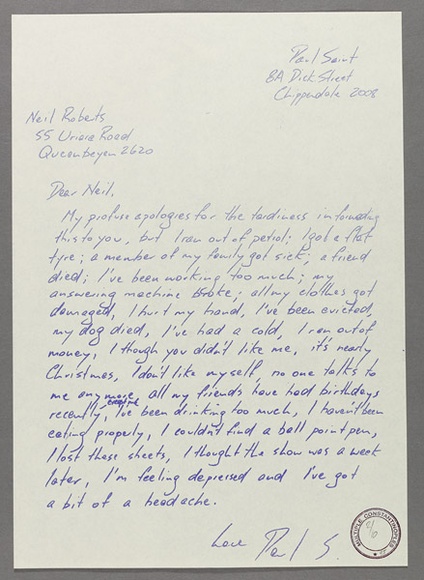 Paul Saint
8A Dick Street
Chippendale 2008
Neil Roberts
55 Uriara Road
Queanbeyan 2620
Dear Neil,
My profuse apologies for the tardiness in forwarding
this to you, but I ran out of petrol; I got a flat
tyre; a member of my family got sick; a friend
died; I've been working too much; my
answering machine broke; all my clothes got
damaged, I hurt my hand, I've been evicted,
my dog died, I've had a cold, I ran out of
money, I though you didn't like me, it's nearly
Christmas, I don't like myself, no one talks to
me anymore, all my friends have had birthdays
recently, except me I've been drinking too much, I haven't been
eating properly, I couldn't find a ball point pen,
I lost these sheets, I thought the show was a week
later, I'm feeling depressed and I've got
a bit of a headache.
Love Paul S.
MULTIPLE CONSTANTINOPLES